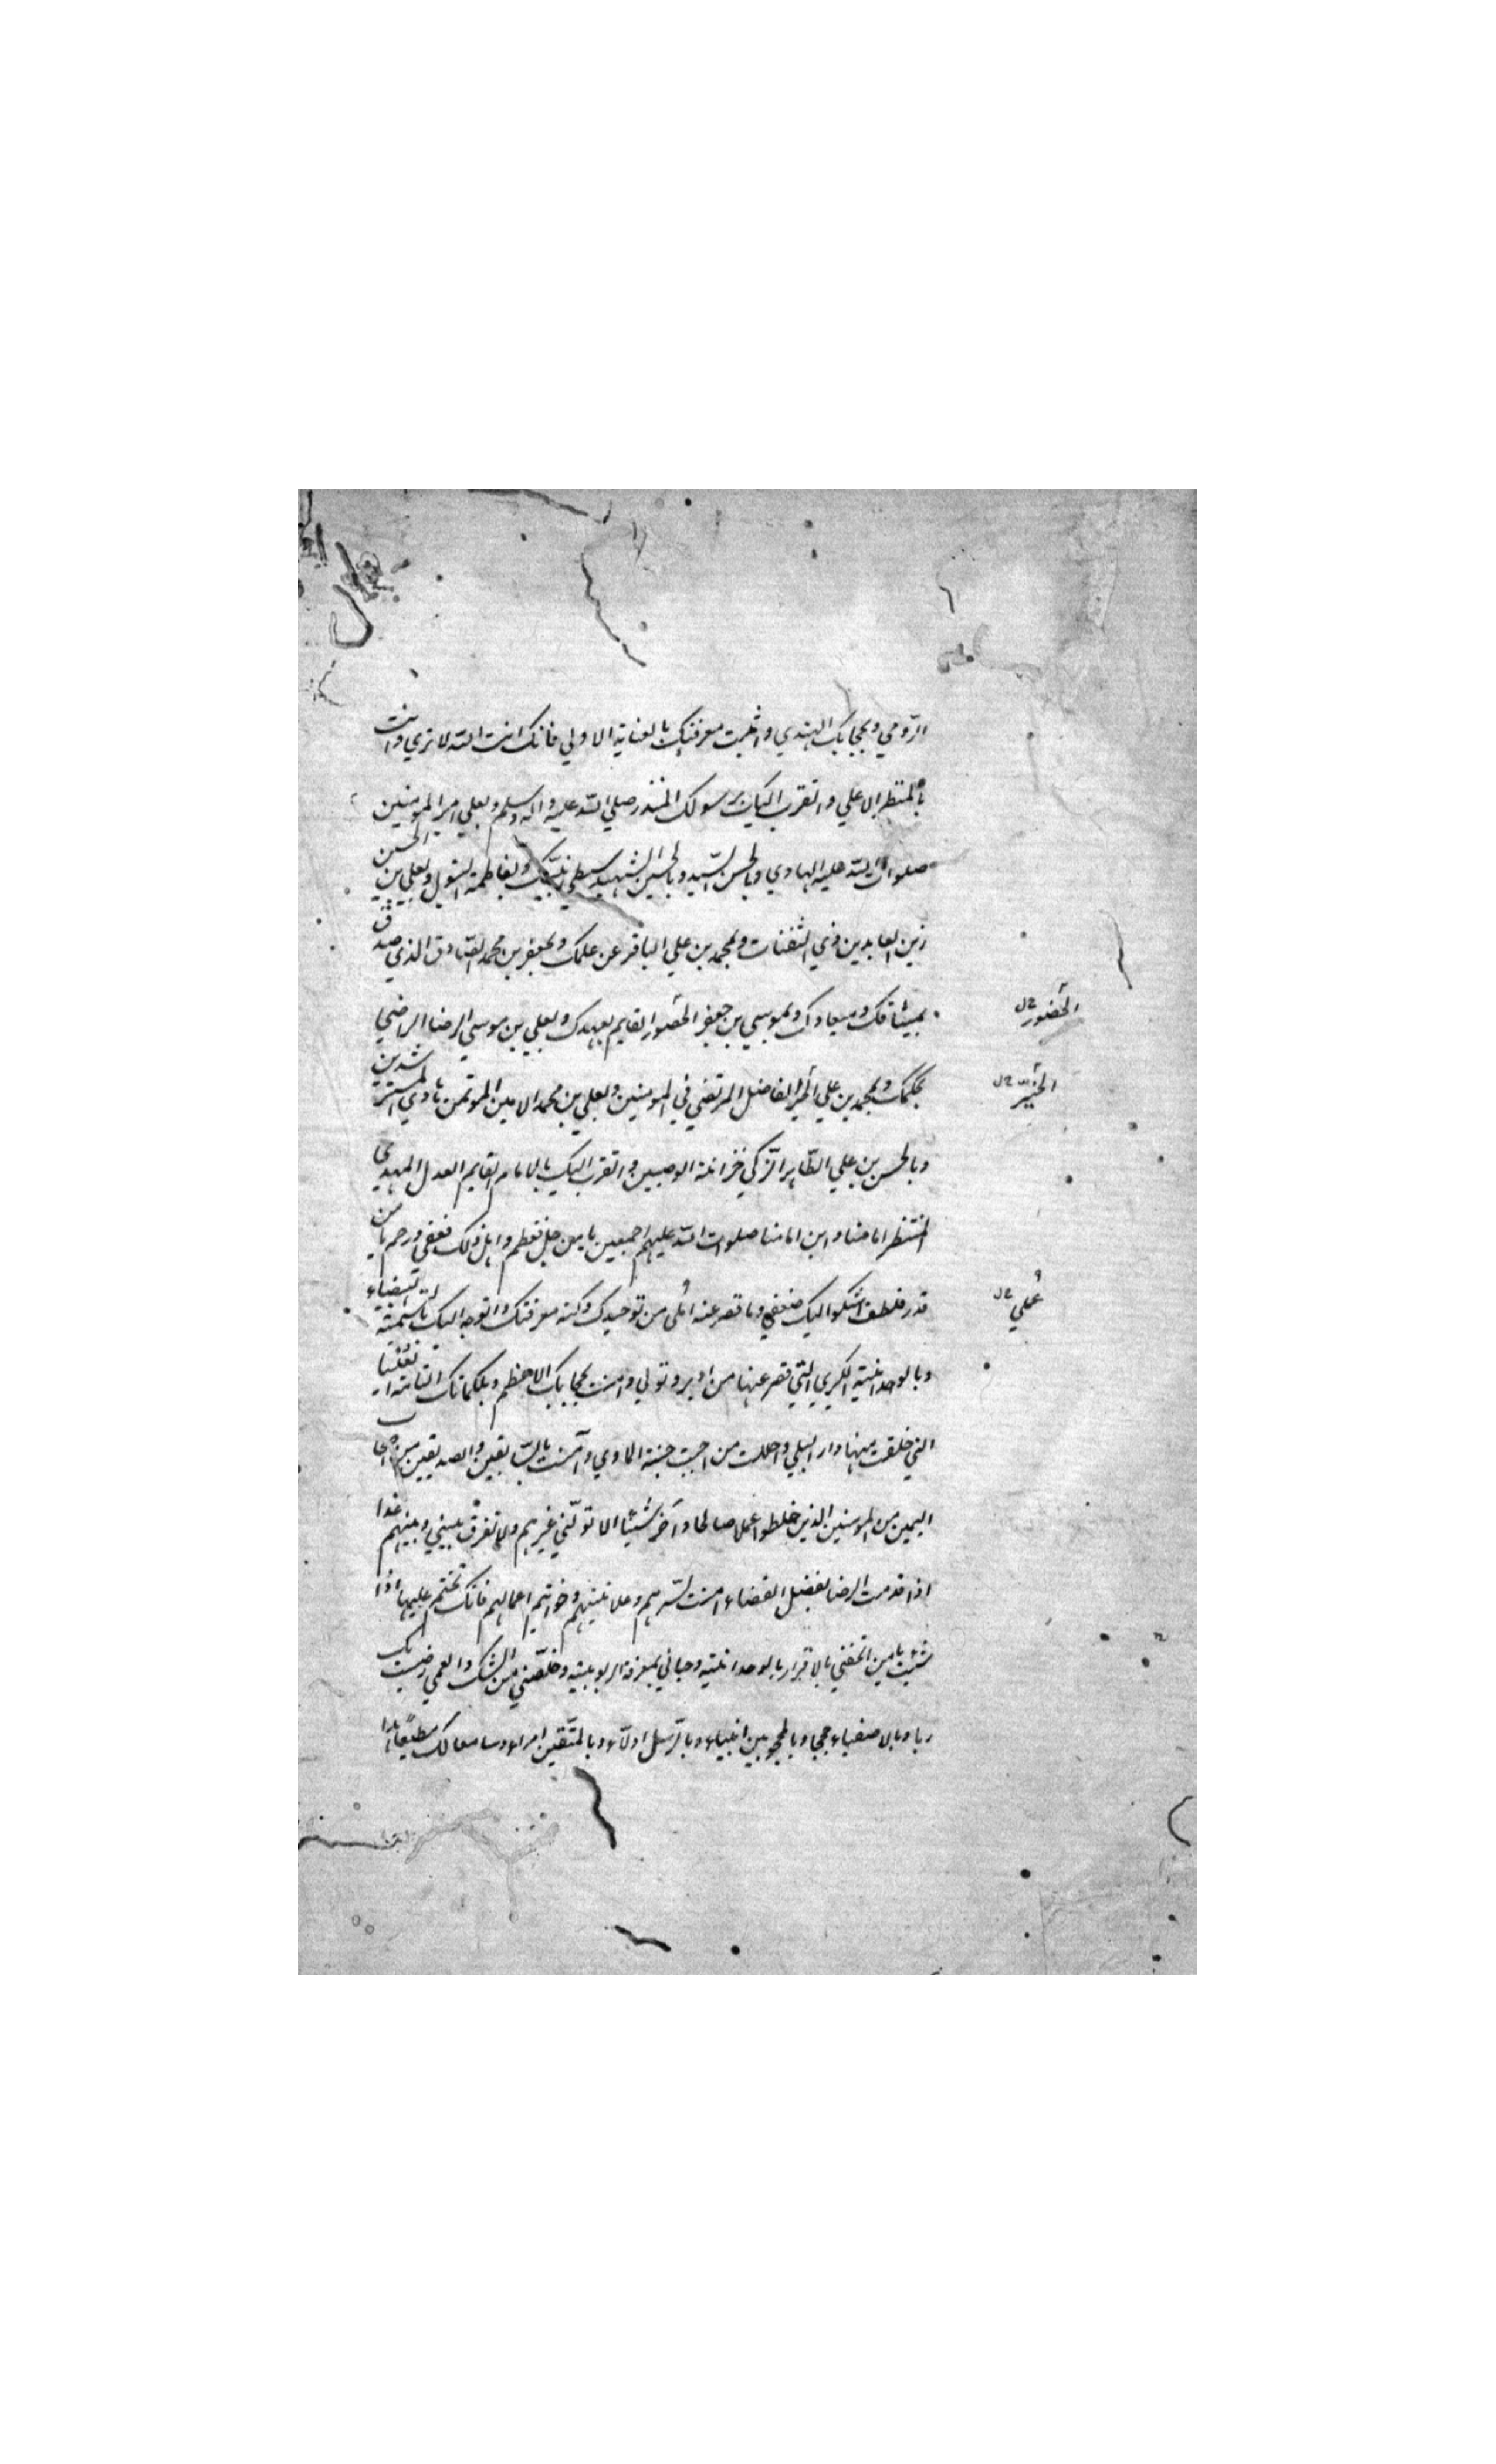 الرّومي وبحجابك الهندي واثبت معرفتك بالعناية الاولي فانك انت الله لا تري وانت
بالمنظر الاعلي واتقرب اليك برسولك المنذر صلي الله عليه واله وسلم وبعلي امير المومنين
صلوات الله عليه الهادي وبالحسن السّيد وبالحسين الشهيد سبطي نبيّك وبفاطمة البتول وبعلي بن الحسين
زين العابدين ذي الثفنات وبمحمد بن علي الباقر عن علمك وبجعفر بن محمد الصّادق الذي صدق
بميثاقك وميعادك وبموسي بن جعفر الحصور القايم بعهدك وبعلي بن موسي الرضا الراضي
الحضور خ ل
بحكمك وبمحمد بن علي الحبر الفاضل المرتضي في المومنين وبعلي بن محمد الامين الموتمن هادي المسترشدين
الخيّر خ ل
وبالحسن بن علي الطّاهر الزّكي خزانة الوصيين واتقرب اليك بالامام القايم العدل المهدي
المنتظر امامنا وابن امامنا صلوات الله عليهم اجمعين يا من جل فعظم واهل ذلك فعفي ورحم يا من
قدر فلطف اشكوا اليك ضعفي وما قصر عنه املي من توحيدك وكنه معرفتك واتوجه اليك بالتّسمية البيضاء
عملي خ ل
وبالوحدانية الكبري التي قصر عنها من ادبر وتولي وامنت بحجابك الاعظم وبكلماتك التامة العليا
التي خلقت منها دار البلي واحللت من احببت جنة الماوي وآمنت بالسّابقين والصديقين اصحاب
اليمين من المومنين الذين خلطوا عملا صالحا وآخر سّيئا الا تولّني غيرهم ولا تفرق بيني وبينهم غدا
اذا قدمت الرضا بفصل القضاء امنت بسّرهم وعلانيتهم وخواتيم اعمالهم فانك تختم عليها اذا
شئت يا من اتحفني بالاقرار بالوحدانية وحباني بمعرفة الربوبية وخلّصني من الشك والعمي رضيت بك
ربا وبالاصفياء حججا وبالمحجوبين انبياء وبالرّسل ادلاء وبالمتّقين امراء وسامعا لك مطيعًا